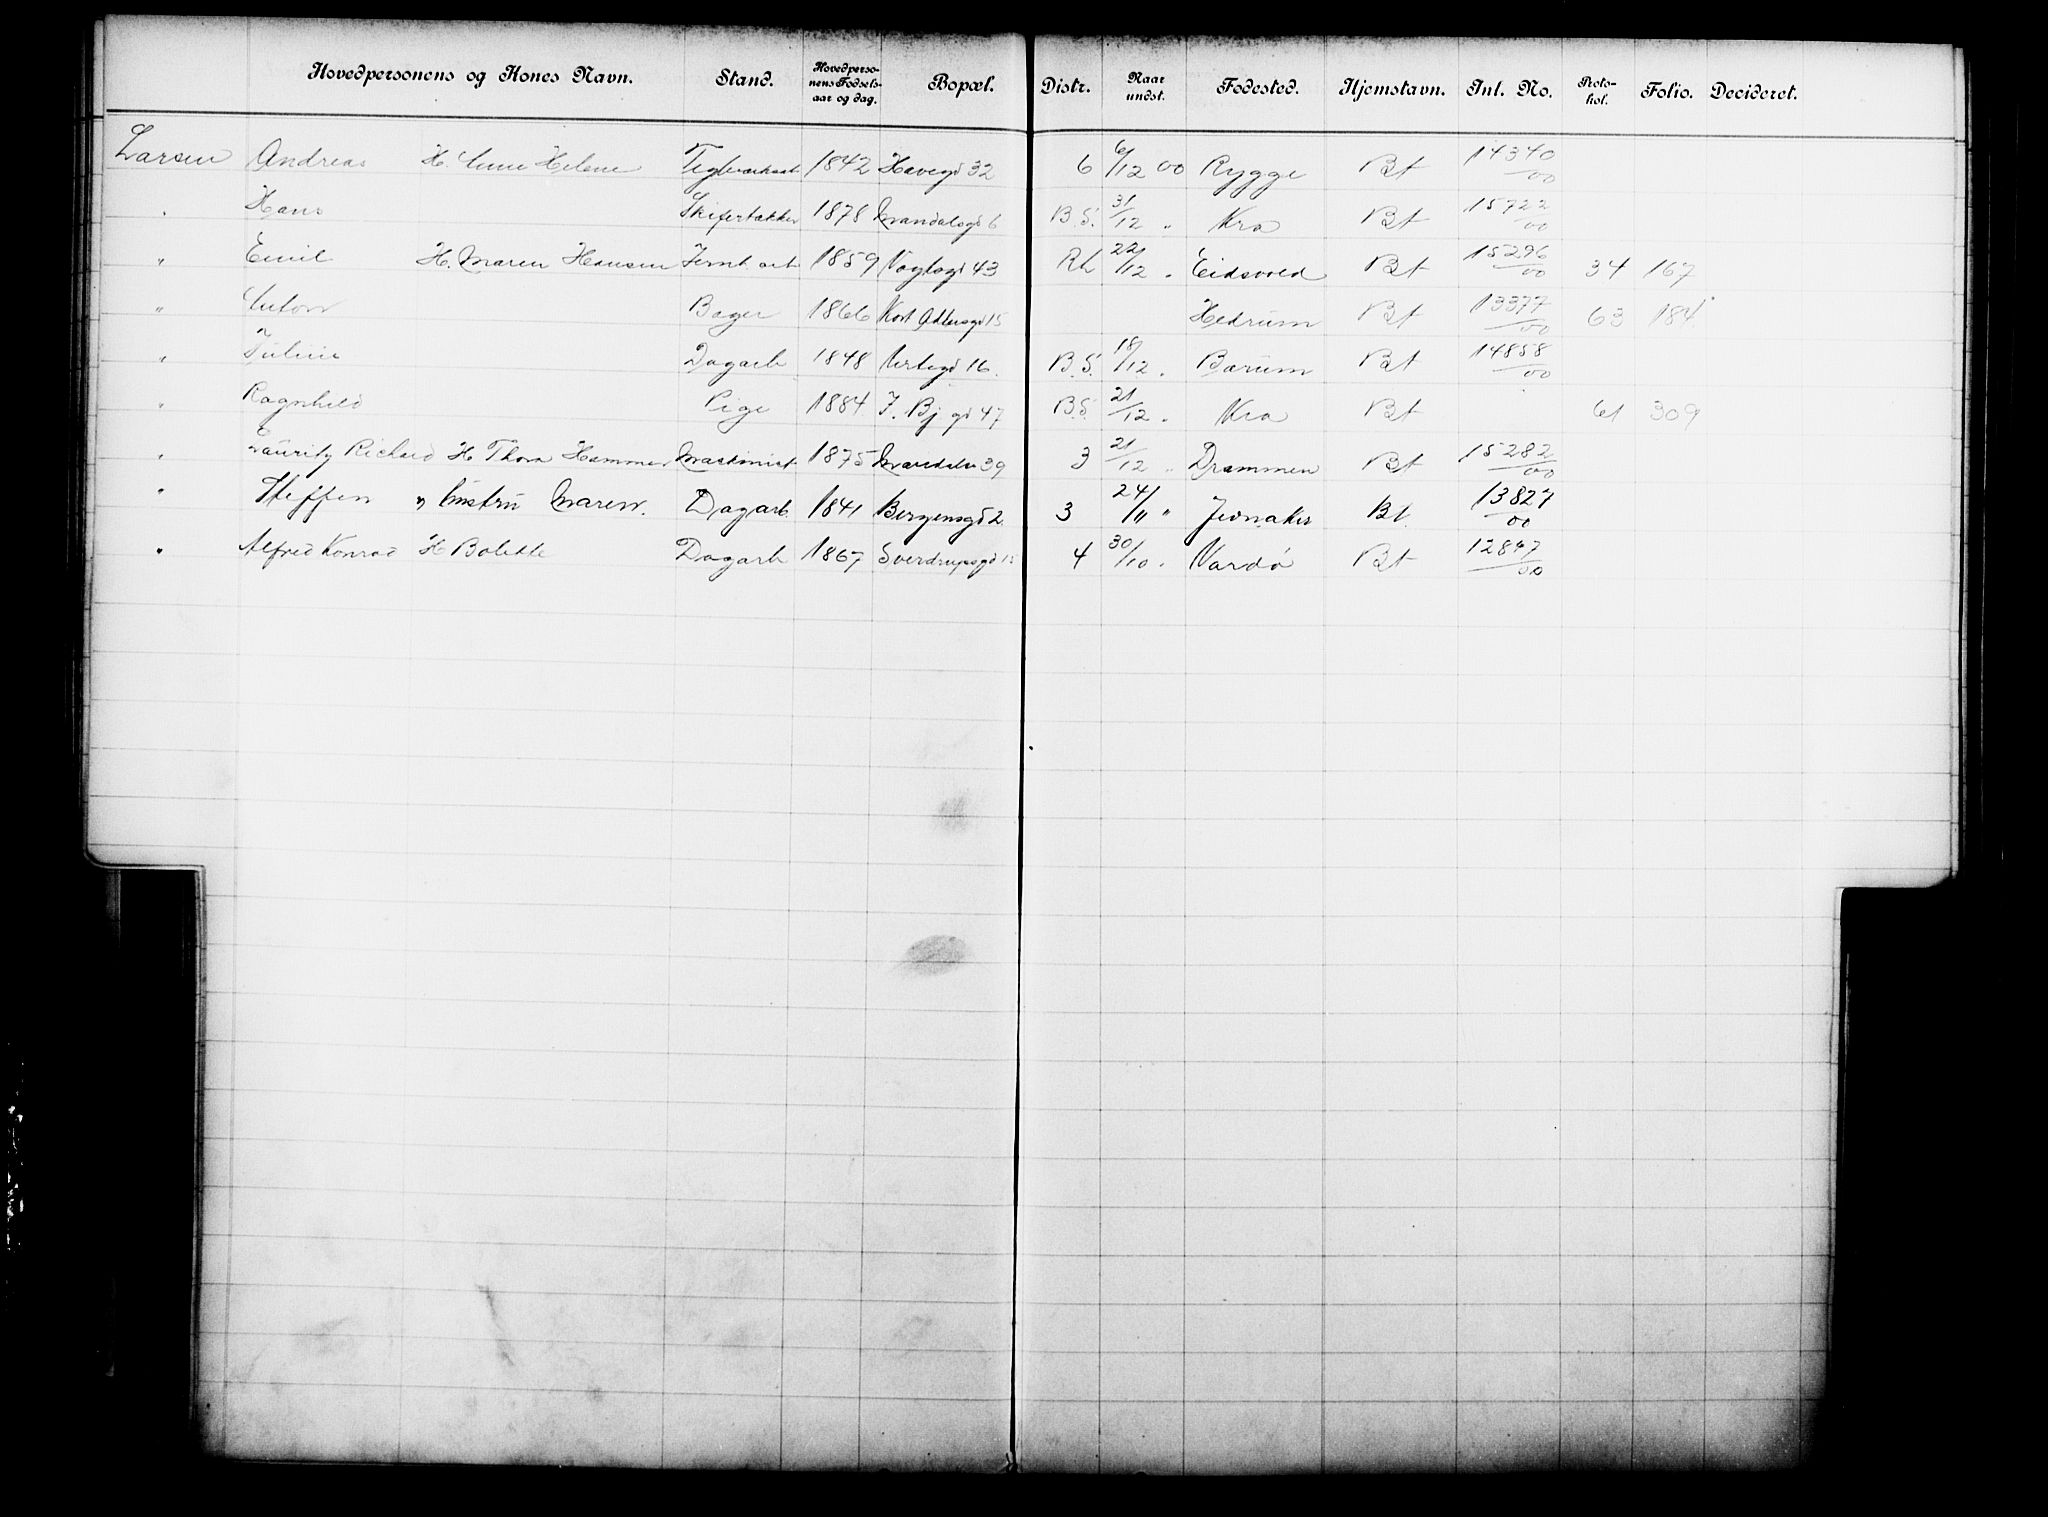 Hovedpersonens og Kones Navn. Stand. Hovedpersonens Fødselsaar og dag. Bopæl. Distr. Naar undst. Fødested. Hjemstavn. Int. No. Protokol. Folio. Decideret.
Larsen Andreas H. Anne Helene 1842 Havegd 32 6 6/12 00 Rygge Bt 14340/00
" Hans Skifertækker 1878 Mandalsgd 6 B.S. 31/12 " Kra Bt 15722/00
" Emil H. Maren Hansen Jernb. arb 1859 Vogtsgd 43 Rh 22/12 " Eidsvold Bt 15296/00 34 167
" Anton Bager 1866 Kort Adlersgd 15 Hedrum Bt 13377/00 63 184
" Juline Dagarb 1848 Urtegd 16. B.S. 18/12 " Bærum Bt 14858/00
" Ragnhild Pige 1884 J. Bj gd 47 B.S. 21/12 " Kra Bt 61 309
" Lauritz Richard H Thora Hammer Maskinist 1875 39 3 21/12 " Drammen Bt 15282/00
" Steffen og Hustru Maren. Dagarb. 1841 Bergensgd 2 3 24/11 " Jevnaker Bt. 13827/00
" Alfred Konrad H Bolette Dagarb 1867 Sverdrupsgd 15 4 30/10 " Vardø Bt 12847/00